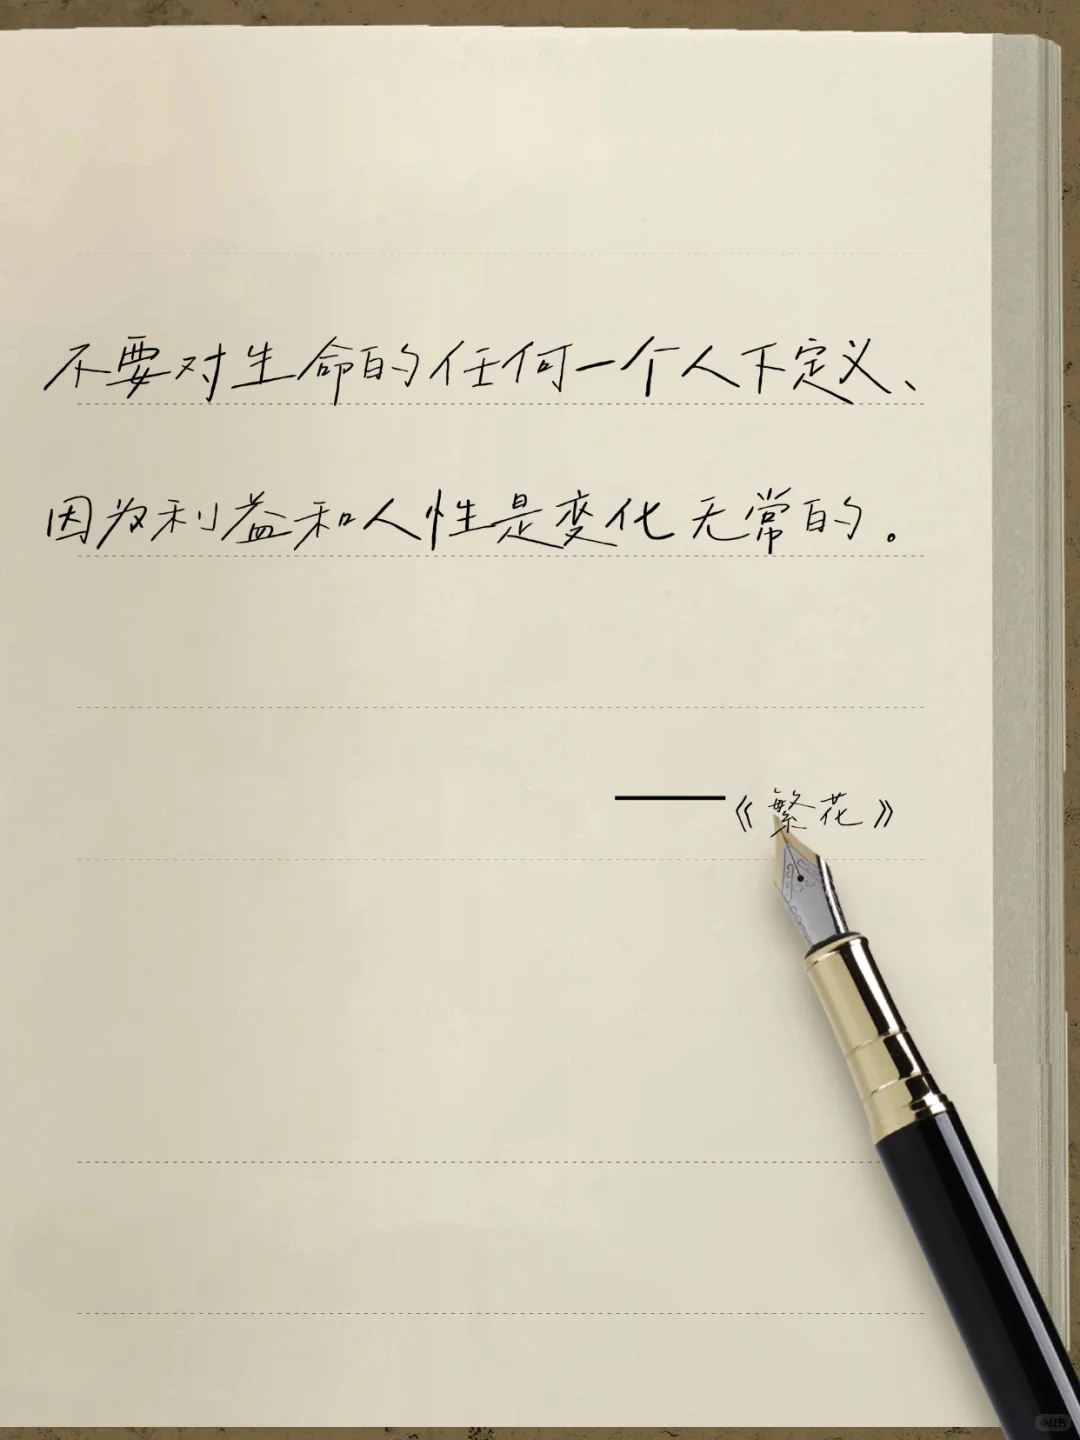 不要对生命的任何一个人下定义、
因为利益和人性是变化无常的。
——《繁花》